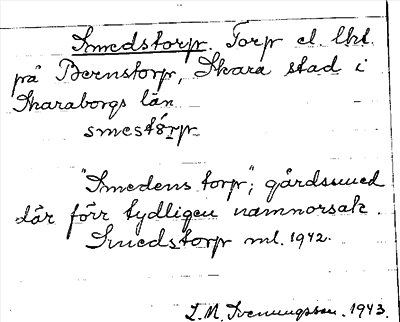 Smedstorp. Torp el. lht
på Bernstorp, Skara stad i
Skaraborgs län
smestǻrp
"Smedens torp"; gårdssmed
där förr tydligen namnorsak.
Smedstorp ml. 1942.
L. M. Svenungsson. 1943.